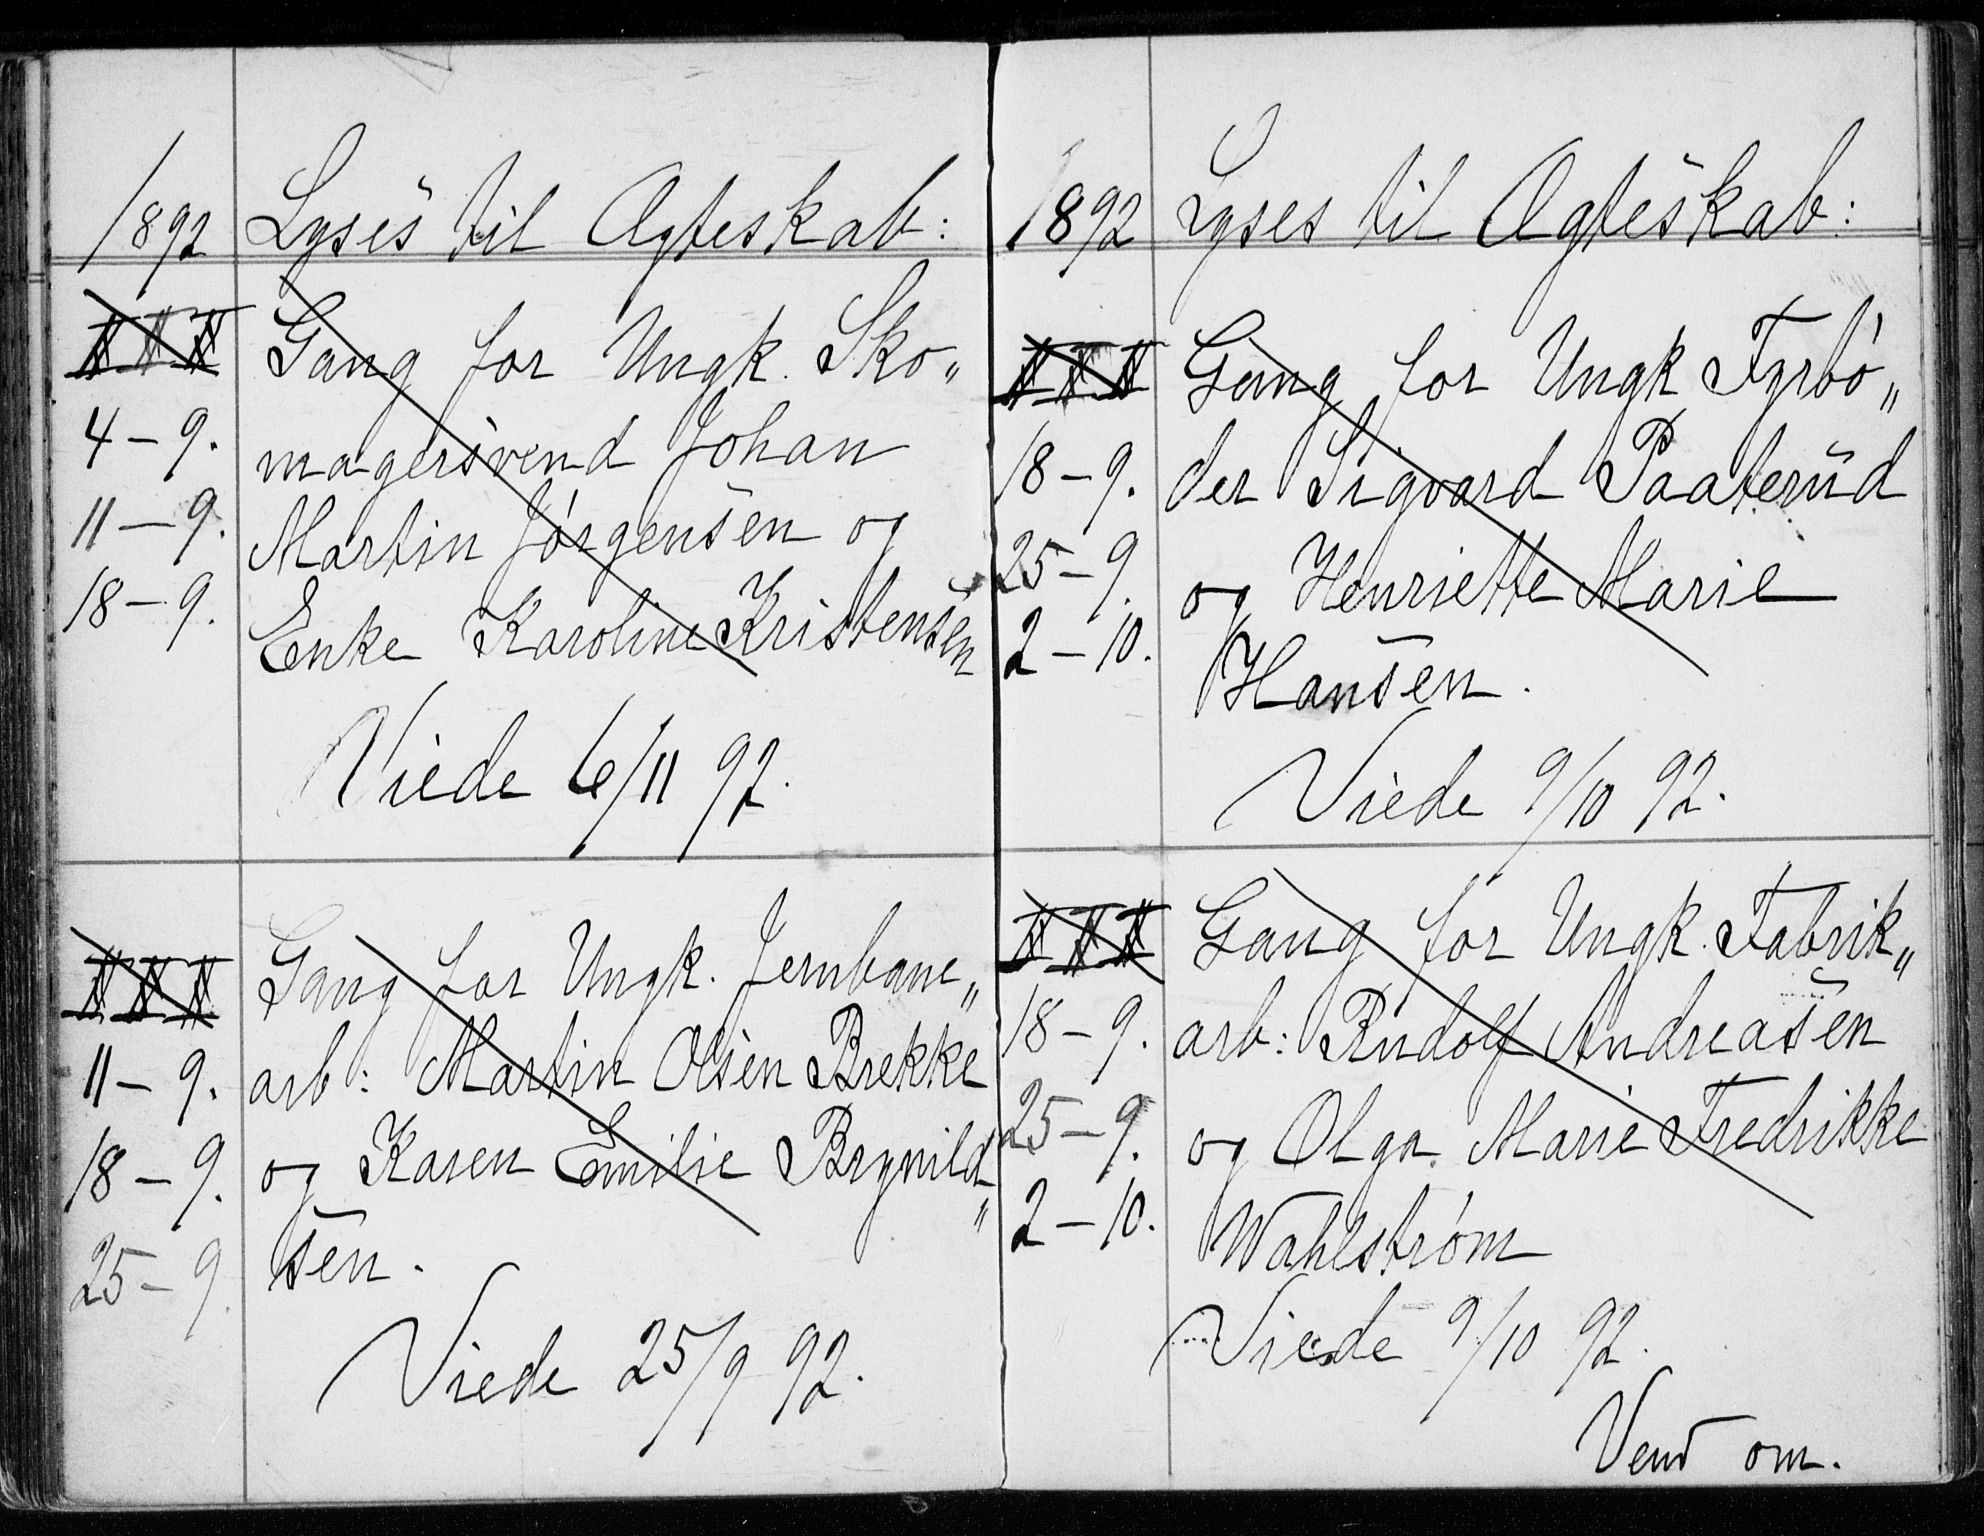 1892 Lyses til Ægteskab:
III Gang for Ungk. Sko„
4-9. magersvend Johan
11-9. Martin Jörgensen og
18-9. Enke Karoline Kristensen
Viede 6/11 92.
III Gang for Ungk. Jernbane„
11-9. arb: Martin Olsen Brekke
18-9. og Karen Emilie Brynild„
25-9. sen.
Viede 25/9 92.
1892 Lyses til Ægteskab:
III Gang for Ungk Fyrbö„
18-9. der Sigvard Paaterud
25-9. og Henriette Marie
2-10. Hansen.
Viede 9/10 92.
III Gang for Ungk. Fabrik„
18-9. arb: Rudolf Andreasen
25-9. og Olga Marie Fredrikke
2-10. Wahlström
Viede 9/10 92.
Vend om.